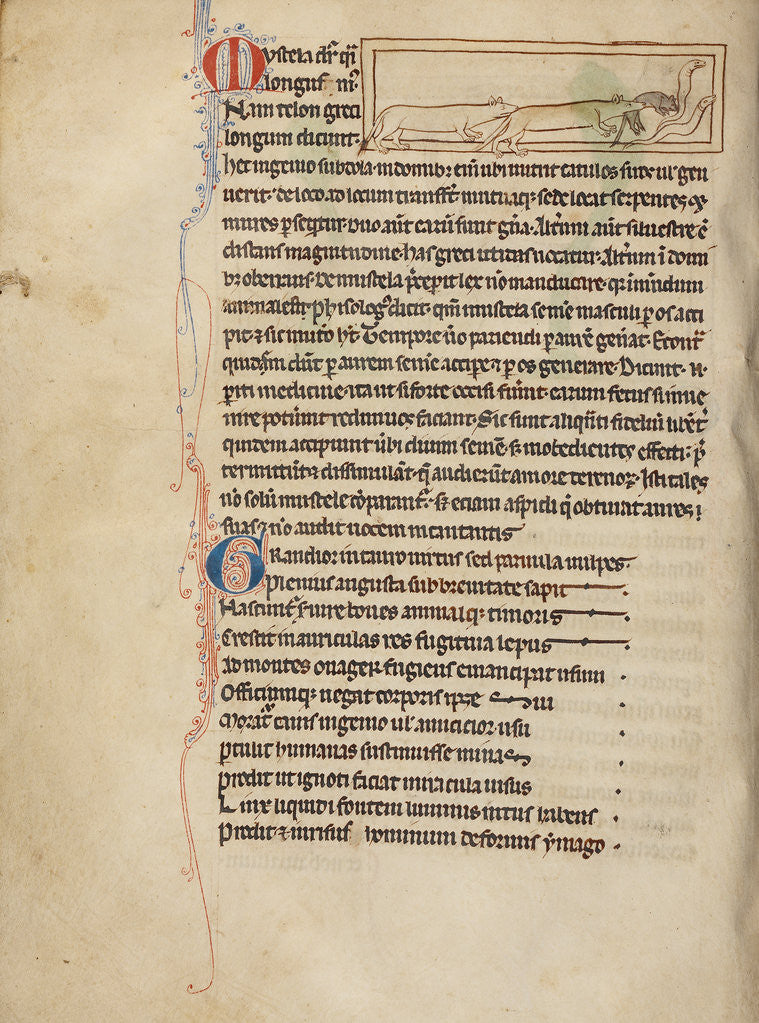 Mystela dicr̄ qͣi
longus m̄s
Nam telon greci
longum dicunt·
hec ingenio subdola· in domibꝫ em̄ ubi nutrit catulos suos ul' gen
uerit· de loco ad locum transfert mutataqꝫ sede locat serpentes ⁊
mures ꝑsequitur· duo aut̄ earū sunt gn̄a· Alterum aut̄ siluestre ē
distans magnitudine· has greci ictidas uocatur· Alterum ī domi
bꝫ oberrans· De mustela p̄cepit lex nō manducare· qꝛ inmundum
animal est· Phisologꝰ dicit· qm̄ mustela semē masculi ꝑ os acci
pit· ⁊ sic in utō hꝫ· Tempore ūo pariendi ꝑ aurē gen̄at· Econtͣ
quidam dn̄t ꝑ aurem semē accipe ⁊ ꝑ os generare· Dicunt· n·
ꝑiti medicine· ita ut si forte occisi fuerint· earum fetus si inue
nire potuerint rediuiuos faciant· Sic sunt aliqͣnti fideliū libent̄
quidem accipiunt ūbi diuini semē· sꝫ inobedientes effecti· p̄
termittūt ⁊ dissimulāt· qͥ audierūt amore terenoꝝ· Isti tales
nō solū mustele cōparant̄· sꝫ eciam aspidi qͥ obturat aures
suas ⁊ nō audit uocem incantantis
Grandior in tauro uirtus sed paruula uulpes·
Plenius angusta sub breuitate sapit
Nascunt̄ siure boues animalqꝫ timoris
Crescit in auriculas res fugitiua lepus
Ad montes onager fugiens emancipat usum
Officiumqꝫ negat corporis ipse sui
Moratͣ cuius ingenio ul' amicicior usu
ꝑtulit humanas sustinuisse minas
prodit ut ignoti faciat miracula uisus
Linx liquidi fontem luminis intus habens
Prodit· ⁊ in risus hominum deformis ymago